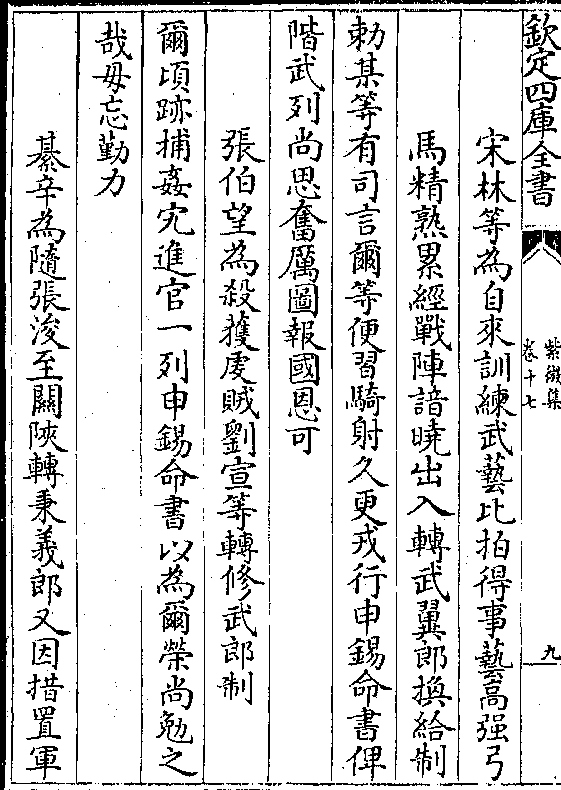 欽定四庫全書
紫微集
卷十七
九
宋林等為自來訓練武藝比拍得事藝高强弓
馬精熟累經戰陣諳曉出入轉武翼郎換給制
勅某等有司言爾等便習騎射久更戎行申錫命書俾
階武列尚思奮厲圖報國恩可
張伯望為殺獲虔賊劉宣等轉修武郎制
爾頃跡捕姦宄進官一列申錫命書以為爾榮尚勉之
哉毋忘勤力
綦辛為隨張浚至關陜轉秉義郎又因措置軍